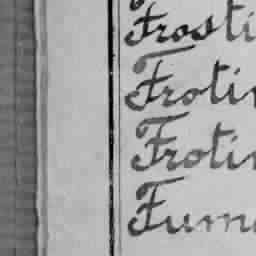 Frosti
Frotin
Frotin
Fuma